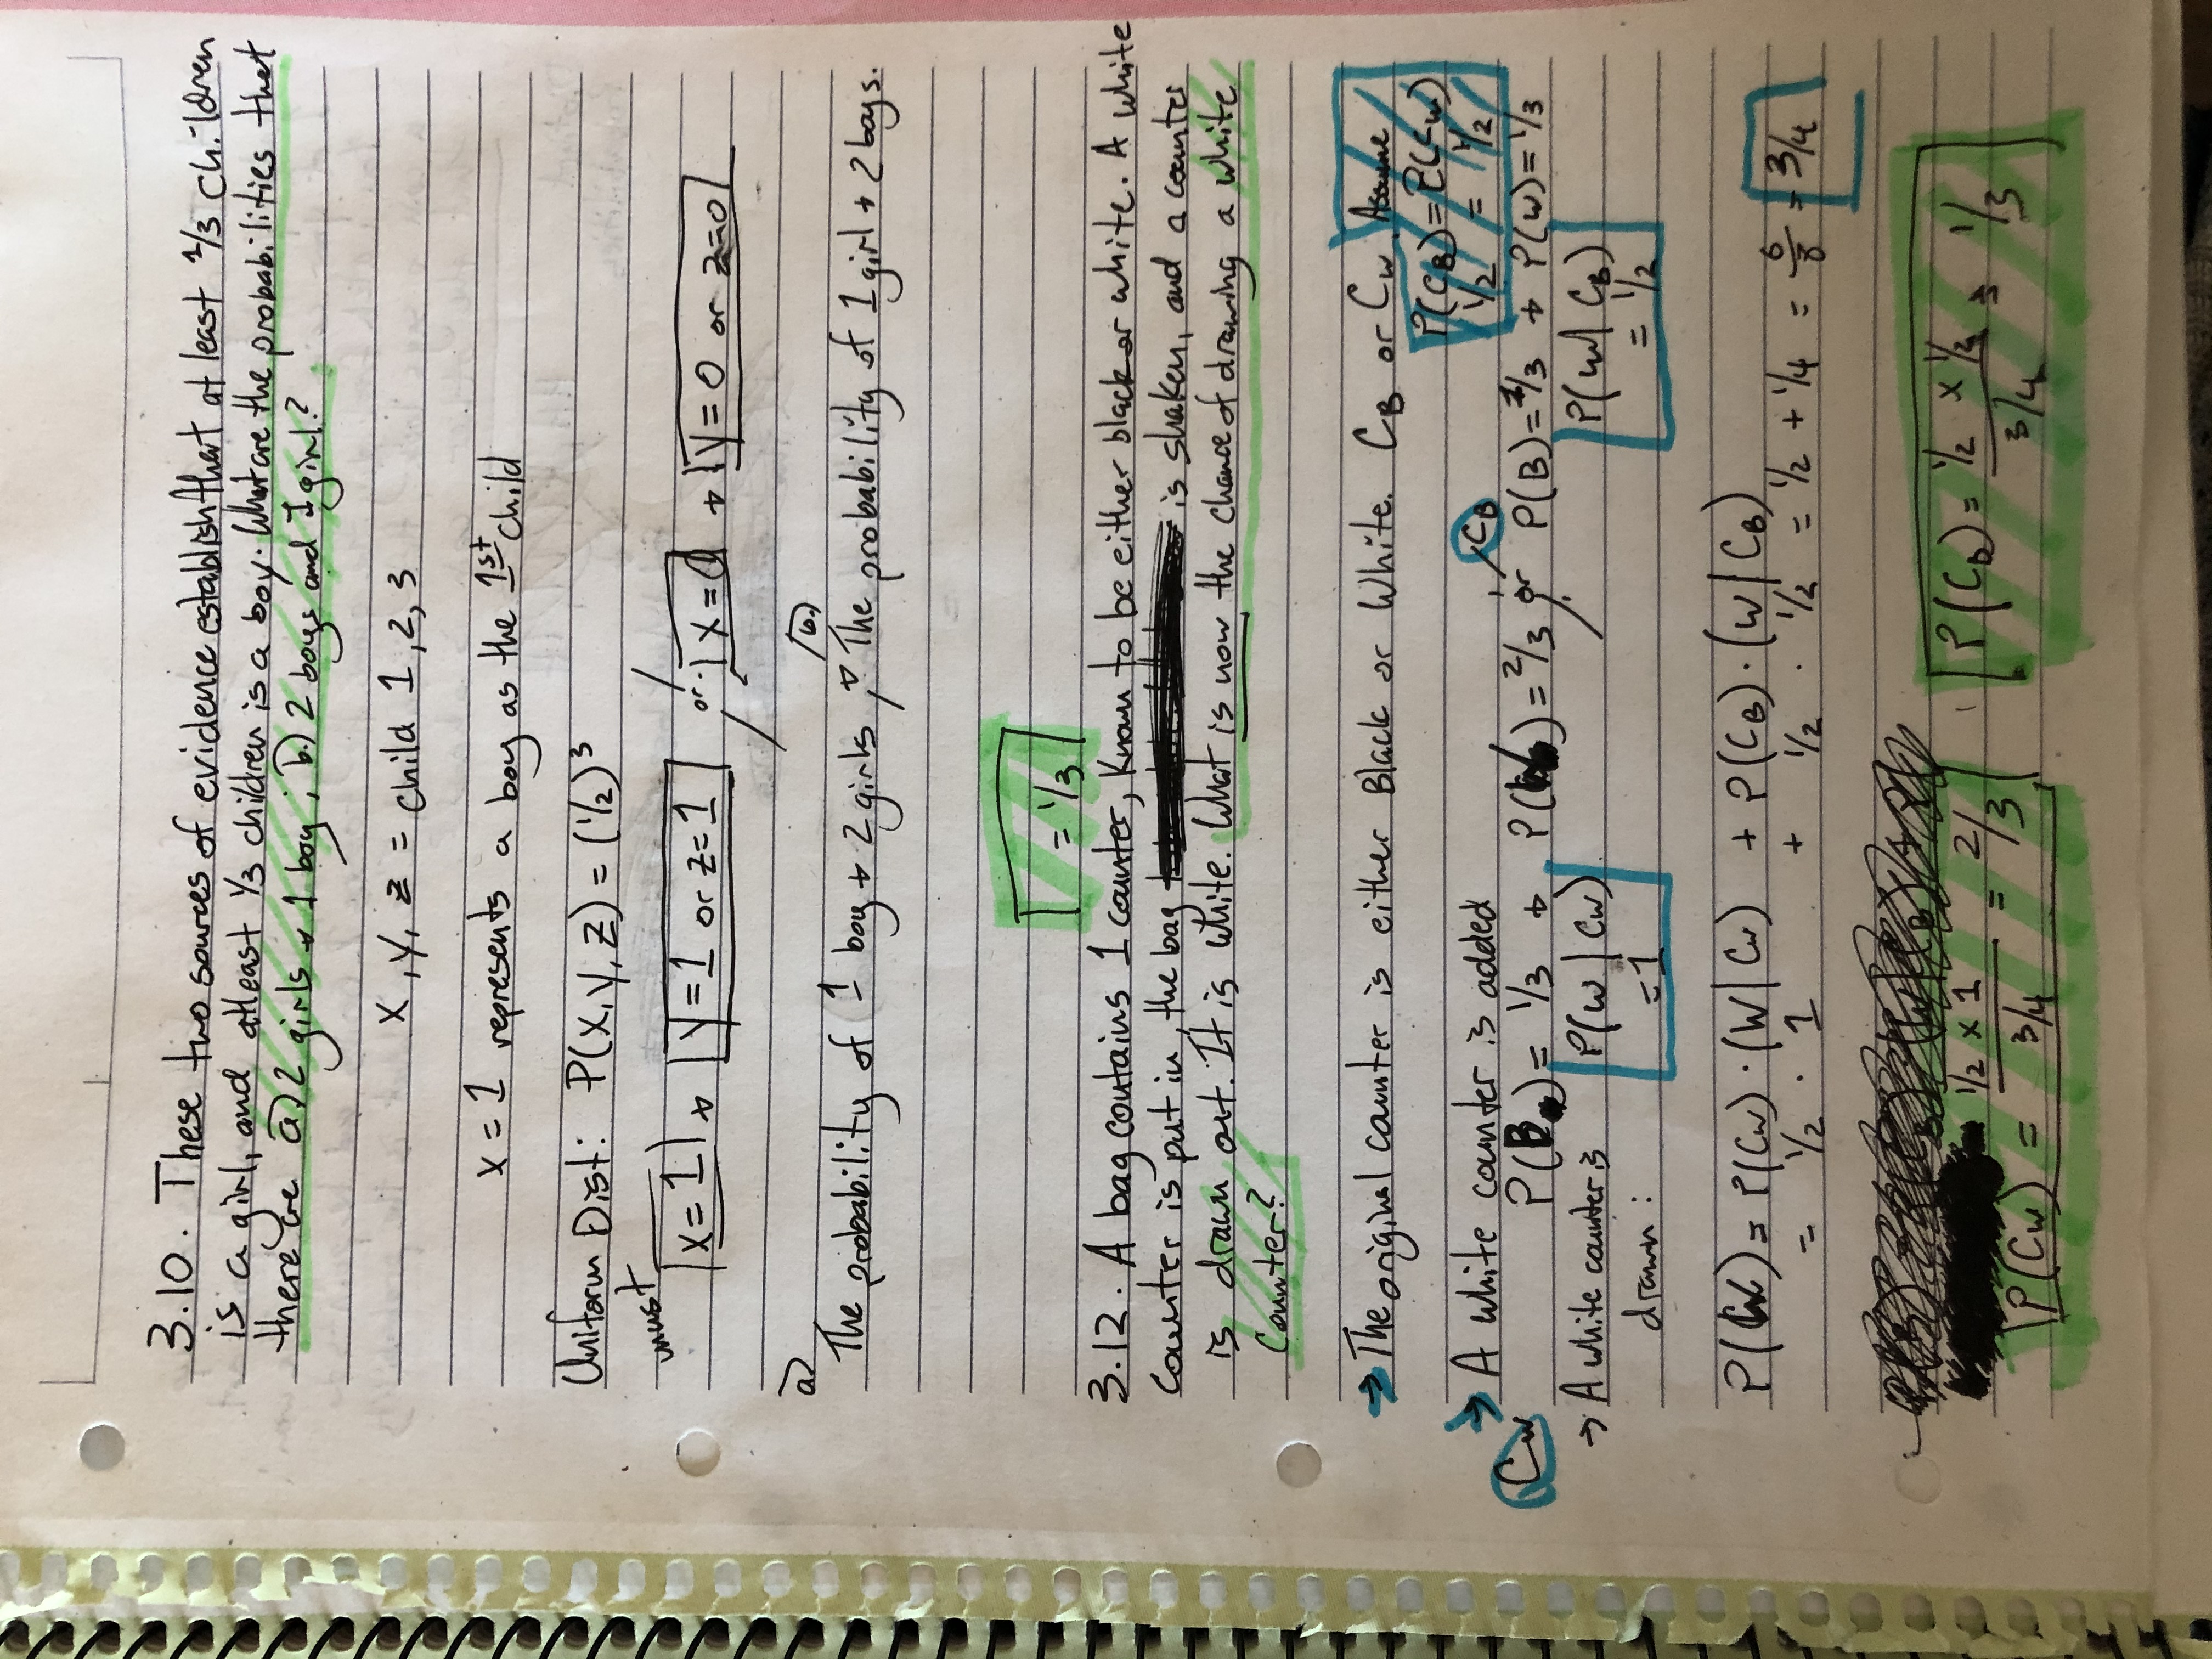 3.10. These two sources of evidence establish that at least 1/3 children
is a girl, and atleast 1/3 children is a boy. What are the probabilities that
there are a) 2 girls + 1 boy ; b.) 2 boys and 1 girl?
X, Y, Z = child 1, 2, 3
X = 1 represents a boy as the 1st child
Uniform Dist: P(X, Y, Z) = (1/2)³
must X = 1 + Y = 1 or Z = 1 / or X = 0 + Y = 0 or Z = 0
a) b.)
The probability of 1 boy + 2 girls, + The probability of 1 girl + 2 boys.
= 1/3
3.12. A bag contains 1 counter, known to be either black or white. A white
counter is put in, the bag is shaken, and a counter
is drawn out. It is white. What is now the chance of drawing a white
counter?
→ The original counter is either Black or White. CB or CW. Assume
P(CB) = P(CW)
1/2 = 1/2
→ A white counter is added CB
CW P(B) = 1/3 + P(W) = 2/3 or P(B) = 2/3 + P(W) = 1/3
→ A white counter is P(W | CW) P(W | CB)
drawn: = 1 = 1/2
P(W) = P(CW) · (W | CW) + P(CB) · (W | CB)
= 1/2 · 1 + 1/2 · 1/2 = 1/2 + 1/4 = 6/8 = 3/4
P(CW) = 1/2 x 1 / 3/4 = 2/3 P(CB) = 1/2 x 1/2 / 3/4 = 1/3